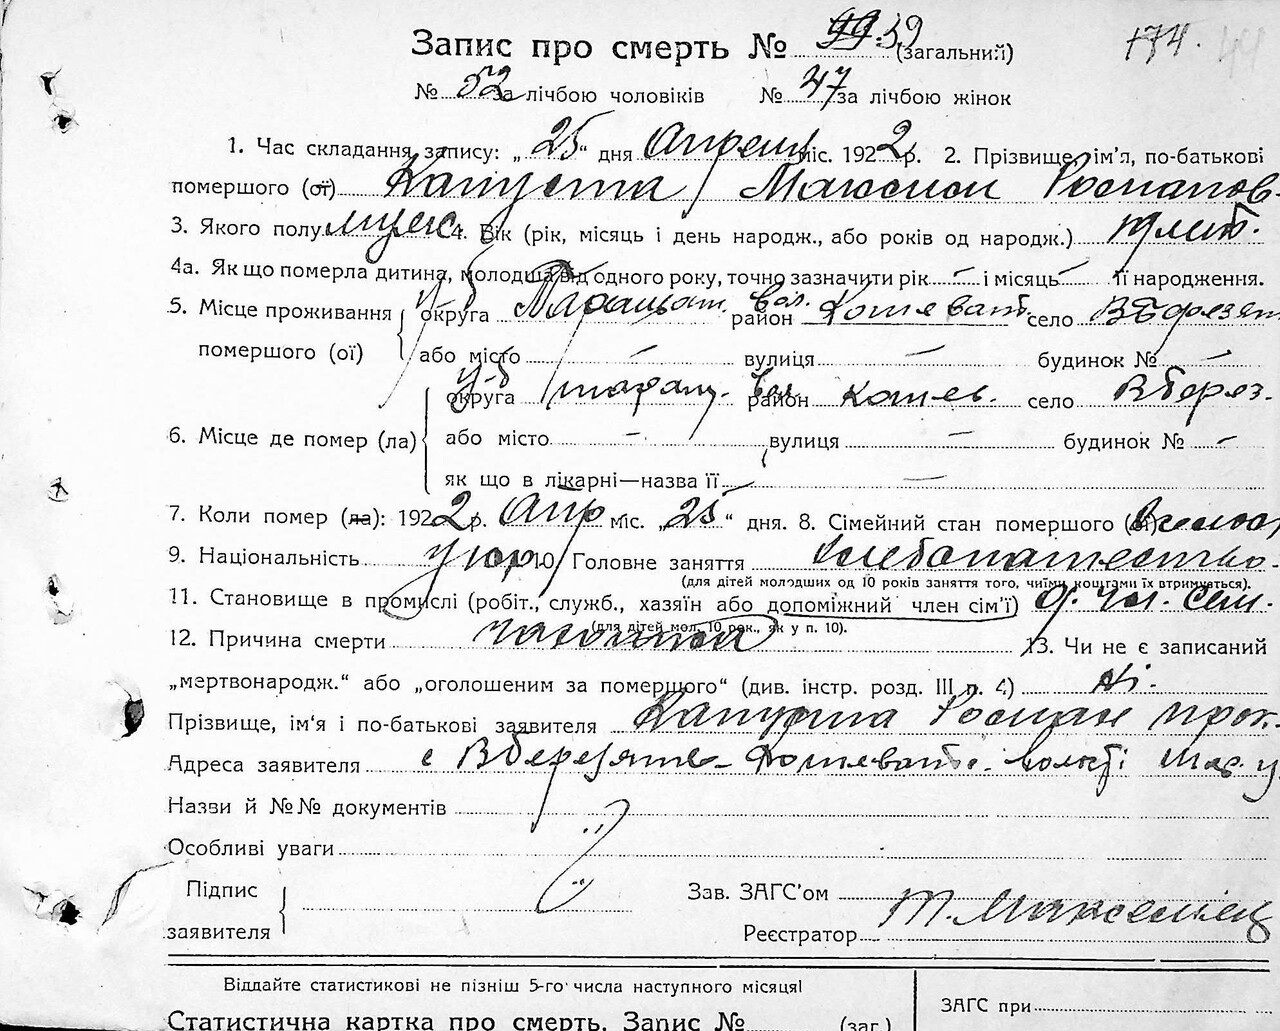 Запис про смерть № 59 (загальний) 174.
№ 52 за лічбою чоловіків № 47 за лічбою жінок
1. Час складання запису: „25“ дня Апреля міс. 1922 р. 2. Прізвище, ім'я, по-батькові
помершого (ої) Капуста Максим Романов
3. Якого полу муж 4. Вік (рік, місяць і день народж., або років од народж.)
4а. Як що померла дитина, молодша від одного року, точно зазначити рік — і місяць — її народження.
5. Місце проживання округа у-ѣ Таращат. район вол. Кошеват. село ВБерезян
помершого (ої) або місто — вулиця — будинок № —
округа у-ѣ таращ. район вол. кошев. село ВБерез.
6. Місце де помер (ла) або місто — вулиця — будинок № —
як що в лікарні—назва її —
7. Коли помер (ла): 1922 р. Апр міс. „25“ дня. 8. Сімейний стан помершого (ої)
9. Національність укр 10. Головне заняття хлебопашество.
(для дітей молодших од 10 років заняття того, чиїми коштами їх втримується).
11. Становище в промислі (робіт., служб., хазяїн або допоміжний член сім'ї) д. чл. сем.
(для дітей мол. 10 рок., як у п. 10).
12. Причина смерти 13. Чи не є записаний
„мертвонародж.“ або „оголошеним за помершого“ (див. інстр. розд. III п. 4) Ні.
Прізвище, ім'я і по-батькові заявителя Капуста Роман прок.
Адреса заявителя с ВБерезянк Кошеват. волості Тар. у
Назви й №№ документів
Особливі уваги
Підпис Зав. ЗАГС'ом
заявителя Реєстратор
Віддайте статистикові не пізніш 5-го числа наступного місяця!
ЗАГС при
Статистична картка про смерть. Запис № (заг.)